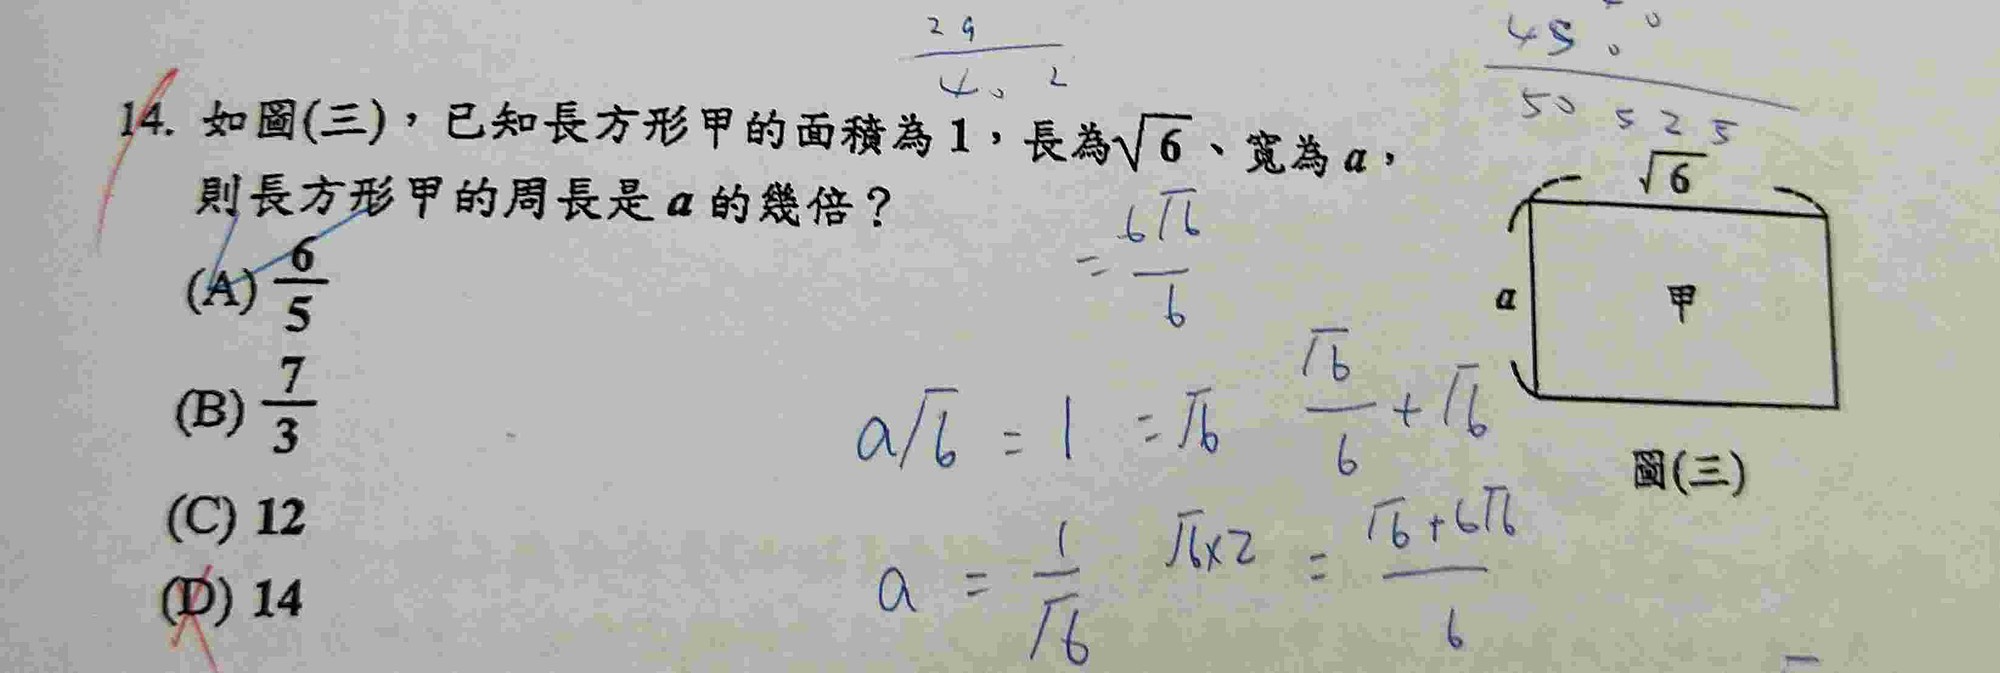 29
40 2
48.00
50 525
14. 如圖(三)，已知長方形甲的面積為 1，長為√6、寬為 a，
則長方形甲的周長是 a 的幾倍？
(A) 6/5
(B) 7/3
(C) 12
(D) 14
√6
a
甲
圖(三)
= 6√6/6
a√6 = 1 = √6
√6/6 + √6
a = 1/√6
√6×2
= √6+6√6/6